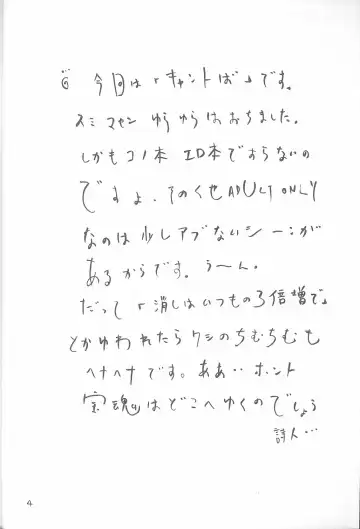 今回は「キャントば」です。
スミマセン ゆうゆうはおちました。
しかもコノ本 エロ本ですらないの
ですよ、そのくせADULT ONLY
なのは少しアブないシーンが
あるからです。う〜ん。
だって「消しはいつもの3倍増で」
とかゆわれたらワシのちむちむも
ヘナヘナです。ああ‥ホント
宝魂はどこへゆくのでしょう
詩人…
4